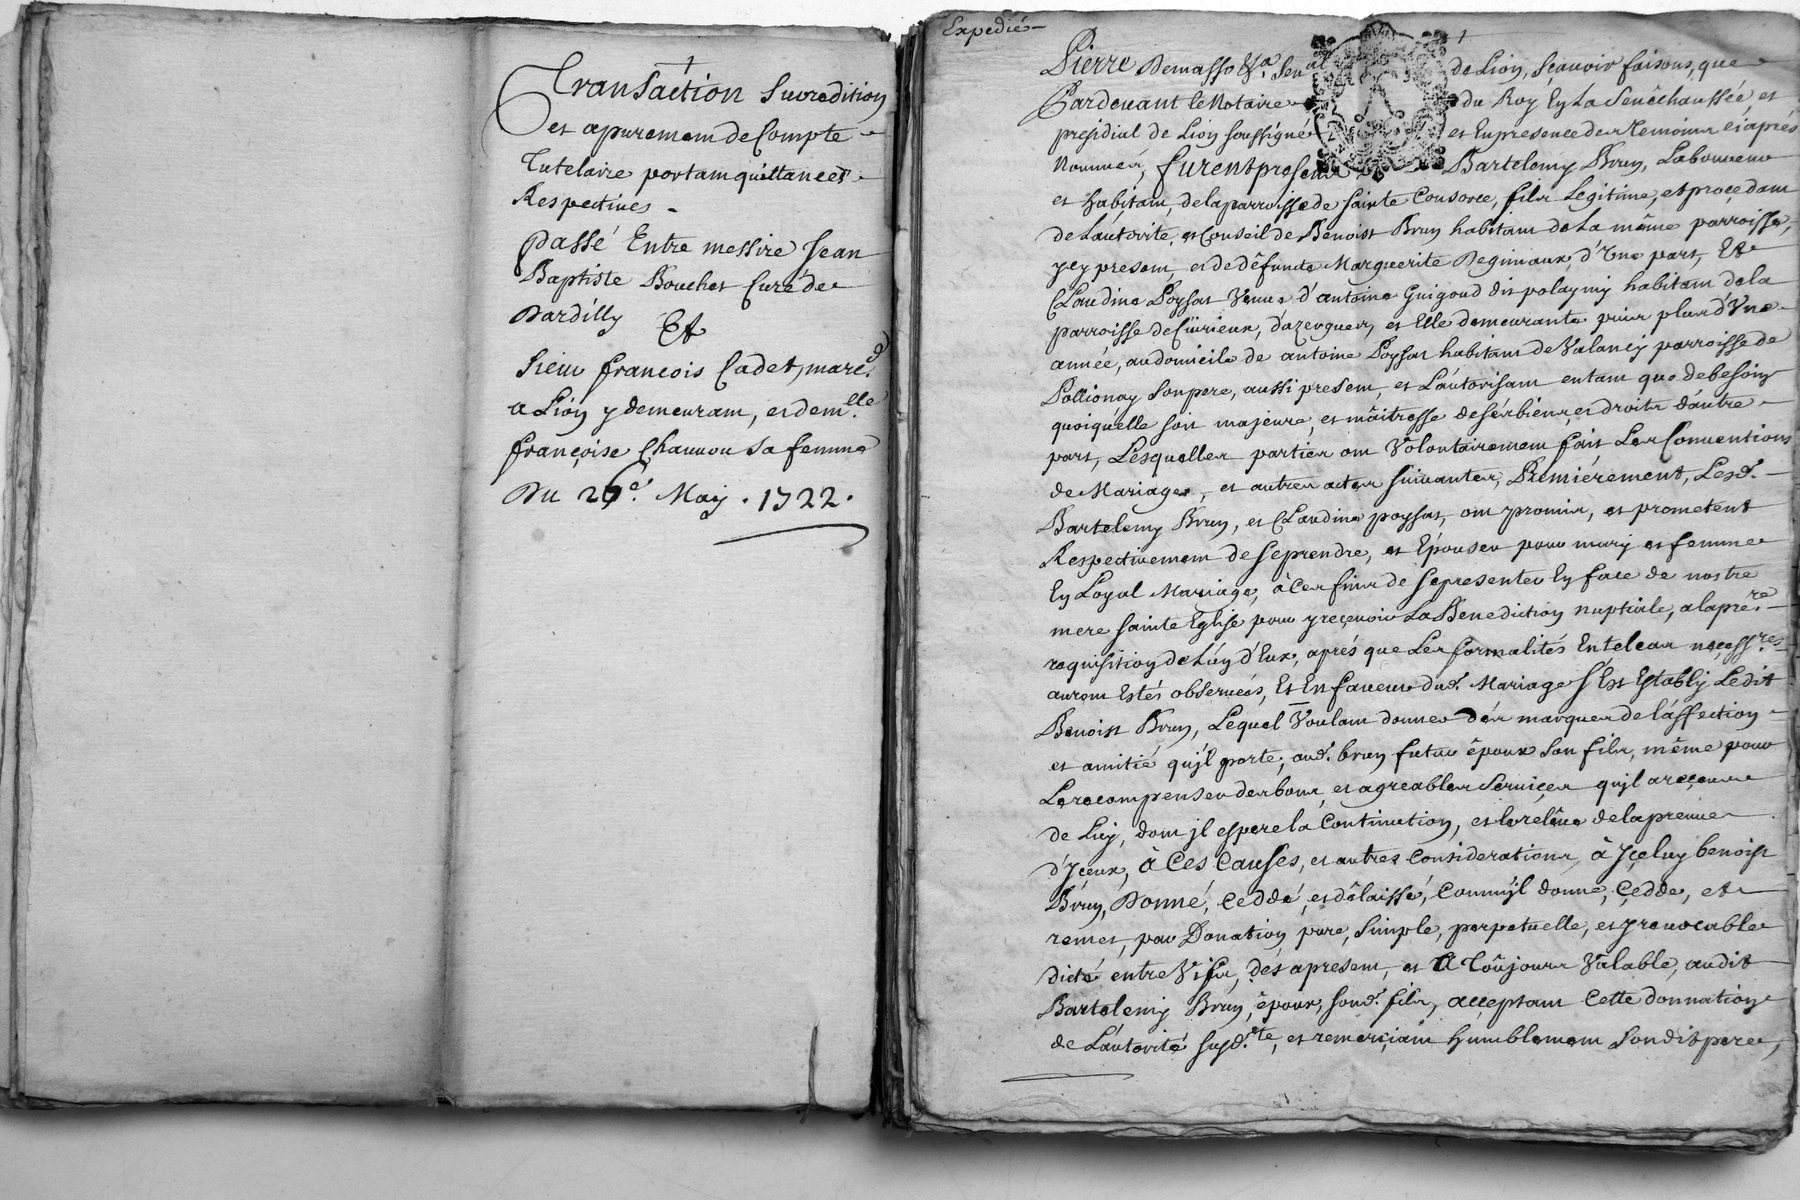 Transaction sur redition
et apurement de Compte
Tutelaire portam quittances
Respectives
passé Entre messire Jean
Baptiste Bouchet Curé de
Dardilly Et
Sieur francois Cadet, marc.d
a Lion y demeuram, et dem.lle
françoise Chauvou sa femme
Du 26e. May . 1722 .
Expedié
Pierre Demasso &.a Sen.al de Lion, sçavoir faisons, que
Pardevant Le Notaire du Roy En La Senêchaussée et
presidial de Lion soussigné et En presence des Temoins ci aprés
Nommés, furent presens Bartelemy Brun, Laboureur
et habitam, de la parroisse de Sainte Consorce, fils Legitime, et procedam
de L'autorité, et Conseil de Benoist Brun habitam de La même parroisse,
ycy presem, et de défunte Marguerite Deginiaux, d'Une part, Et
Claudine Poysat Veuve d'antoine Guigoud dit polaymy habitam de la
parroisse de Civrieux, d'azergues, et Elle demeurante puis plus d'Une
année, au domicile de antoine Poysat habitam de Valancy parroisse de
Pollionay son pere, aussi presem, et L'autorisam entam que de besoin
quoiqu'elle soit majeure, et maitresse de sés biens, et droits d'autre
part, Lesquelles parties om Volontairemem fait Les Conventions
de Mariage, et autres actes suivantes, Premiérement, Lesd.
Bartelemy Brun, et Claudine poysat, om promis, et prometent
Respectivemem de se prendre, et Épouser pour mary et femme
En Loyal Mariage, à Ces fins de se presenter En face de nostre
mere sainte Eglise pour y reçevoir La Benediction nuptiale, a la pre.re
requisition de L'un d'Eux, aprés que Les formalités En tel cas neçess.res
aurom Estés observeés, Et En faveur dud. Mariage s'Est Estably Ledit
Benoist Brun, Lequel Voulam donner des marques de l'affection
et amitié qu'jl porte, aud. brun futur époux son fils, même pour
Le recompenser des bons, et agreables serviçes qu'jl a reçeu
de Luy, dom jl espere la Continuation, et le reléve de la preuve
d'jceux, à Ces Causes, et autres Considerations, à Jçeluy benoist
Brun, Donné, Ceddé, et délaissé, Comm'jl donne, Cedde, et
remet, par Donation pure, simple, perpetuelle, et jrrevocable
dicte entre Vifs, dés a presem, et a Toûjours Valable, audit
Bartelemy Brun, époux, sond. fils, acceptam Cette donnation
de L'autorité susd.te, et remerçiam humblemem Sondit pere,